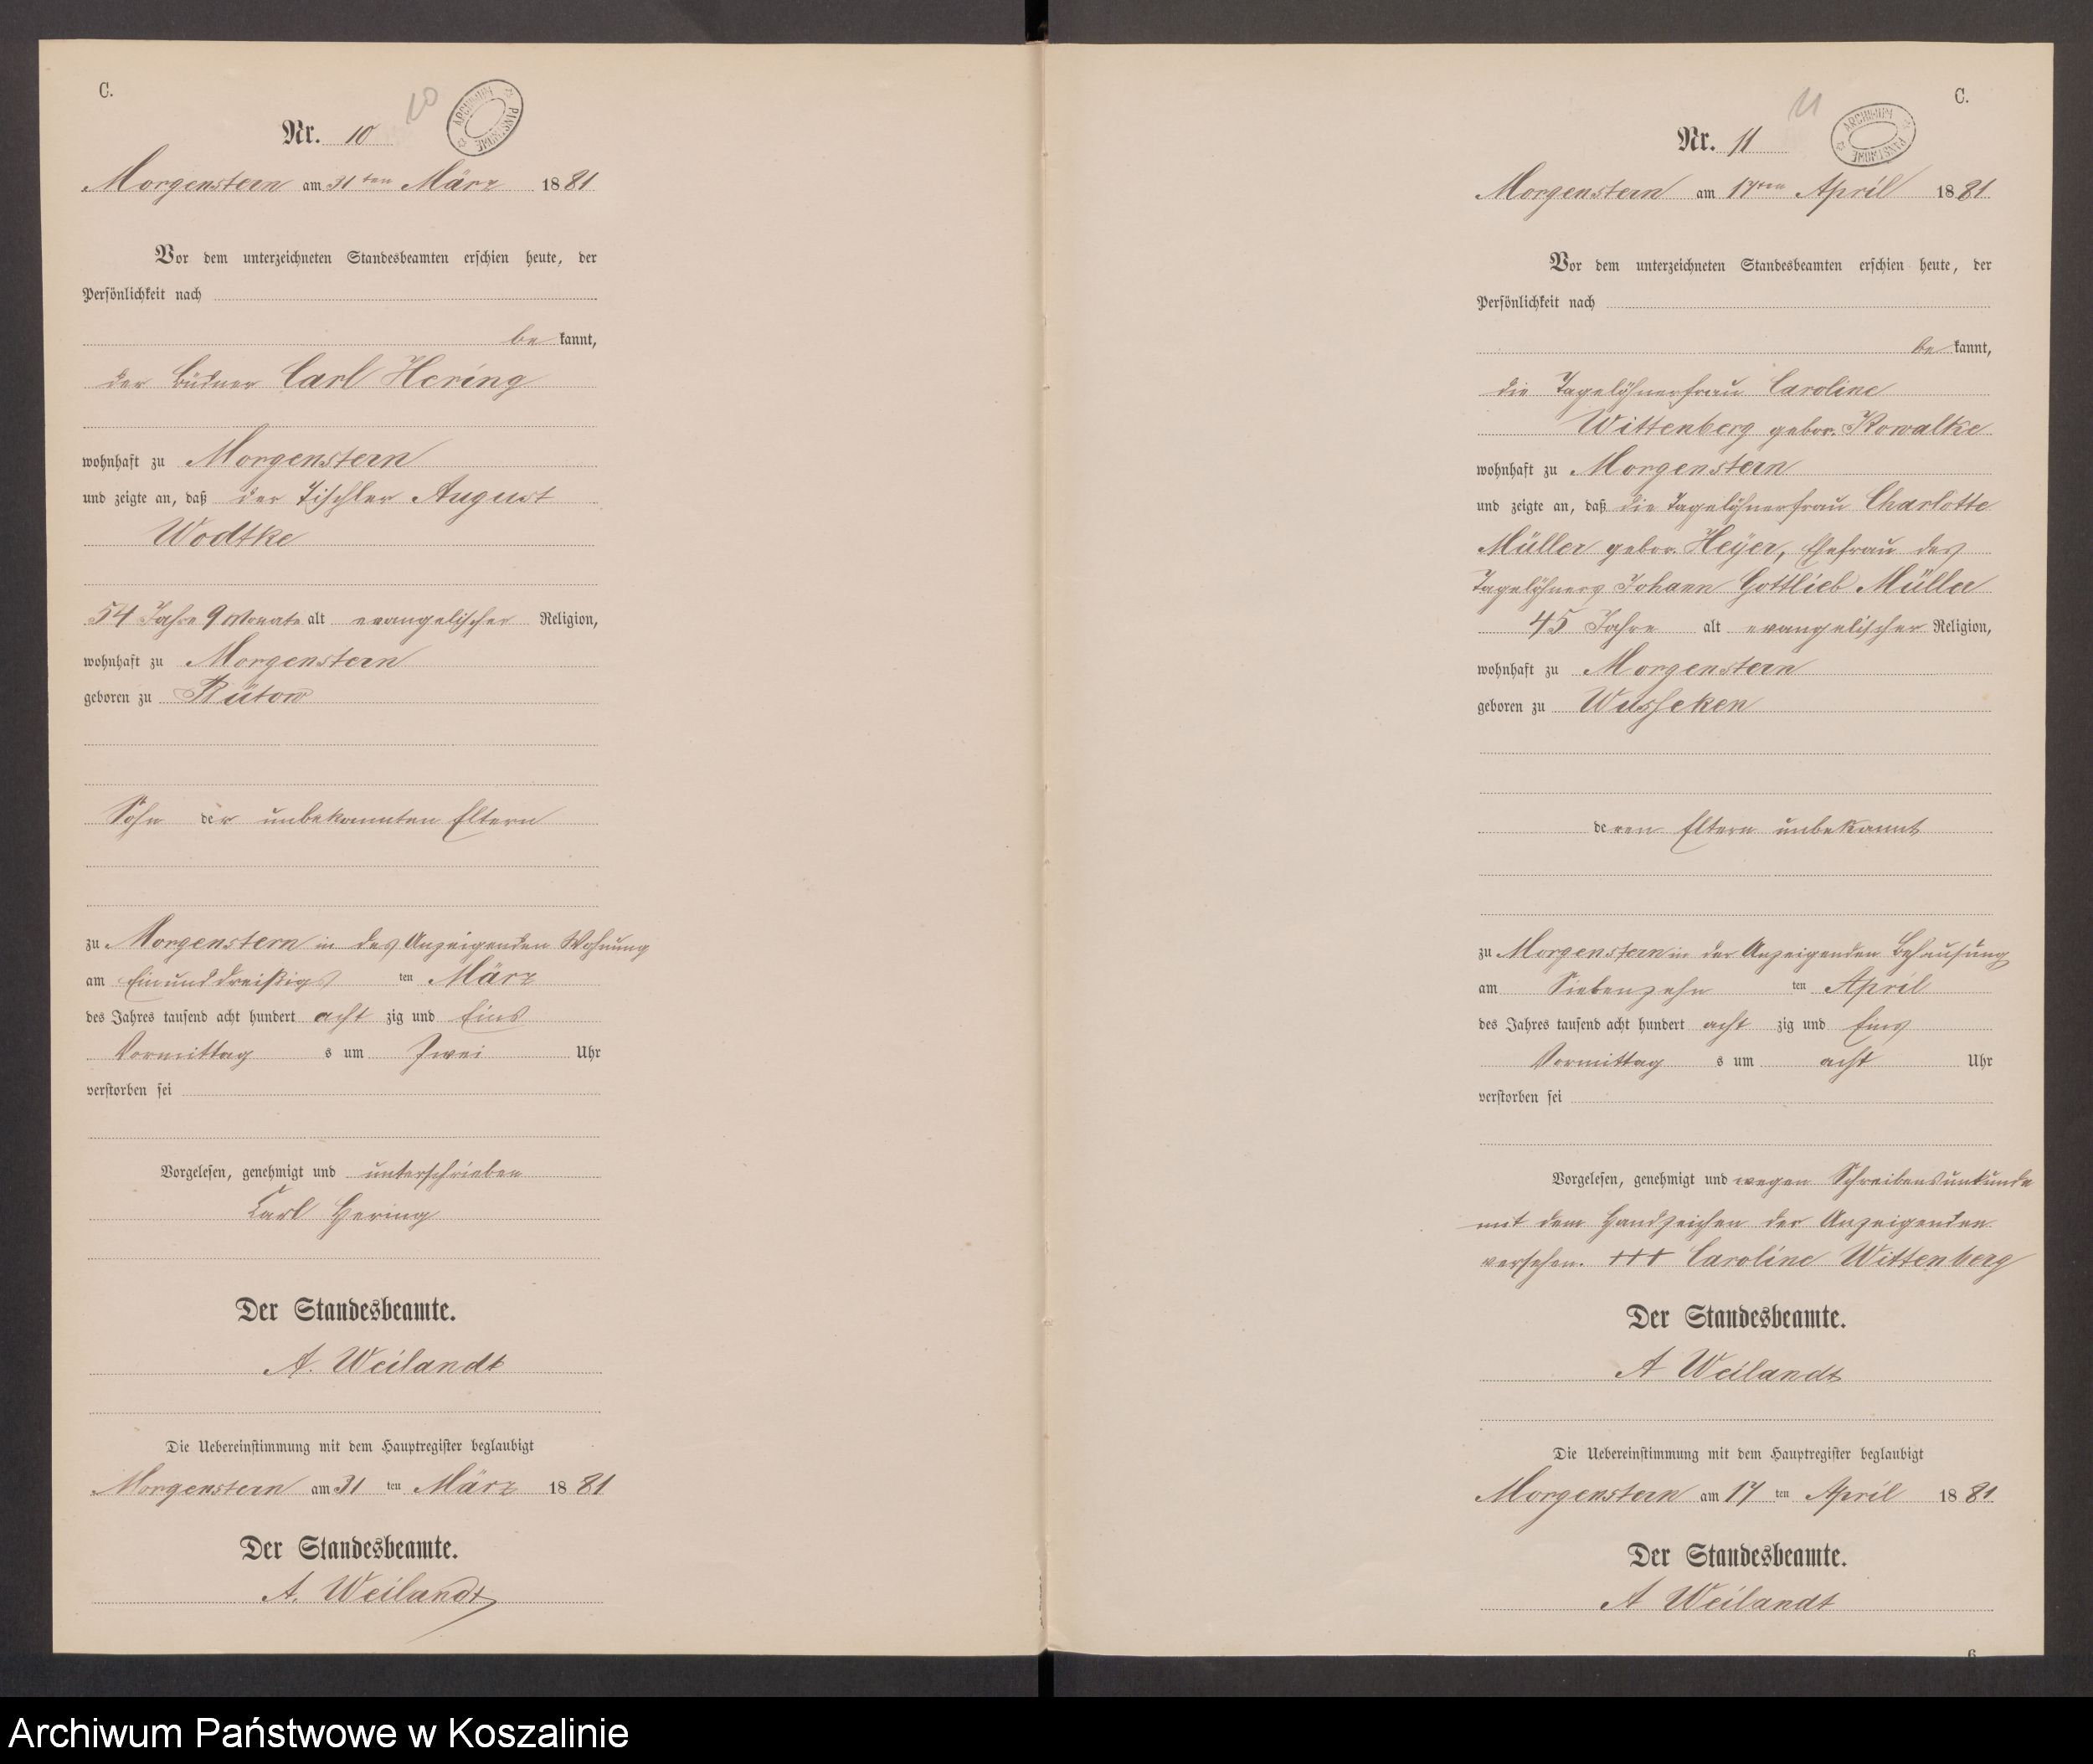 C.
10
ARCHIWUM PAŃSTWOWE
Nr. 10
Morgenstern am 31ten März 1881
Vor dem unterzeichneten Standesbeamten erschien heute, der
Persönlichkeit nach
be kannt,
der Büdner Carl Hering
wohnhaft zu Morgenstern
und zeigte an, daß der Tischler August
Wodtke
54 Jahre 9 Monate alt evangelischer Religion,
wohnhaft zu Morgenstern
geboren zu Bütow
Sohn der unbekannten Eltern
zu Morgenstern in des Anzeigenden Wohnung
am Einunddreißigs ten März
des Jahres tausend acht hundert acht zig und Eins
Vormittag s um Zwei Uhr
verstorben sei
Vorgelesen, genehmigt und unterschrieben
Carl Hering
Der Standesbeamte.
A. Weilandt
Die Uebereinstimmung mit dem Hauptregister beglaubigt
Morgenstern am 31 ten März 1881
Der Standesbeamte.
A. Weilandt
C.
11
ARCHIWUM PAŃSTWOWE
Nr. 11
Morgenstern am 17ten April 1881
Vor dem unterzeichneten Standesbeamten erschien heute, der
Persönlichkeit nach
be kannt,
die Tagelöhnerfrau Caroline
Wittenberg gebor. Kowalke
wohnhaft zu Morgenstern
und zeigte an, daß die Tagelöhnerfrau Charlotte
Müller gebor. Heyer, Ehefrau des
Tagelöhners Johann Gottlieb Müller
45 Jahre alt evangelischer Religion,
wohnhaft zu Morgenstern
geboren zu Wusseken
deren Eltern unbekannt
zu Morgenstern in der Anzeigenden Behausung
am Siebenzehn ten April
des Jahres tausend acht hundert acht zig und Eins
Vormittag s um acht Uhr
verstorben sei
Vorgelesen, genehmigt und wegen Schreibensunkunde
mit dem Handzeichen der Anzeigenden
versehen. +++ Caroline Wittenberg
Der Standesbeamte.
A Weilandt
Die Uebereinstimmung mit dem Hauptregister beglaubigt
Morgenstern am 17 ten April 1881
Der Standesbeamte.
A Weilandt
6
Archiwum Państwowe w Koszalinie